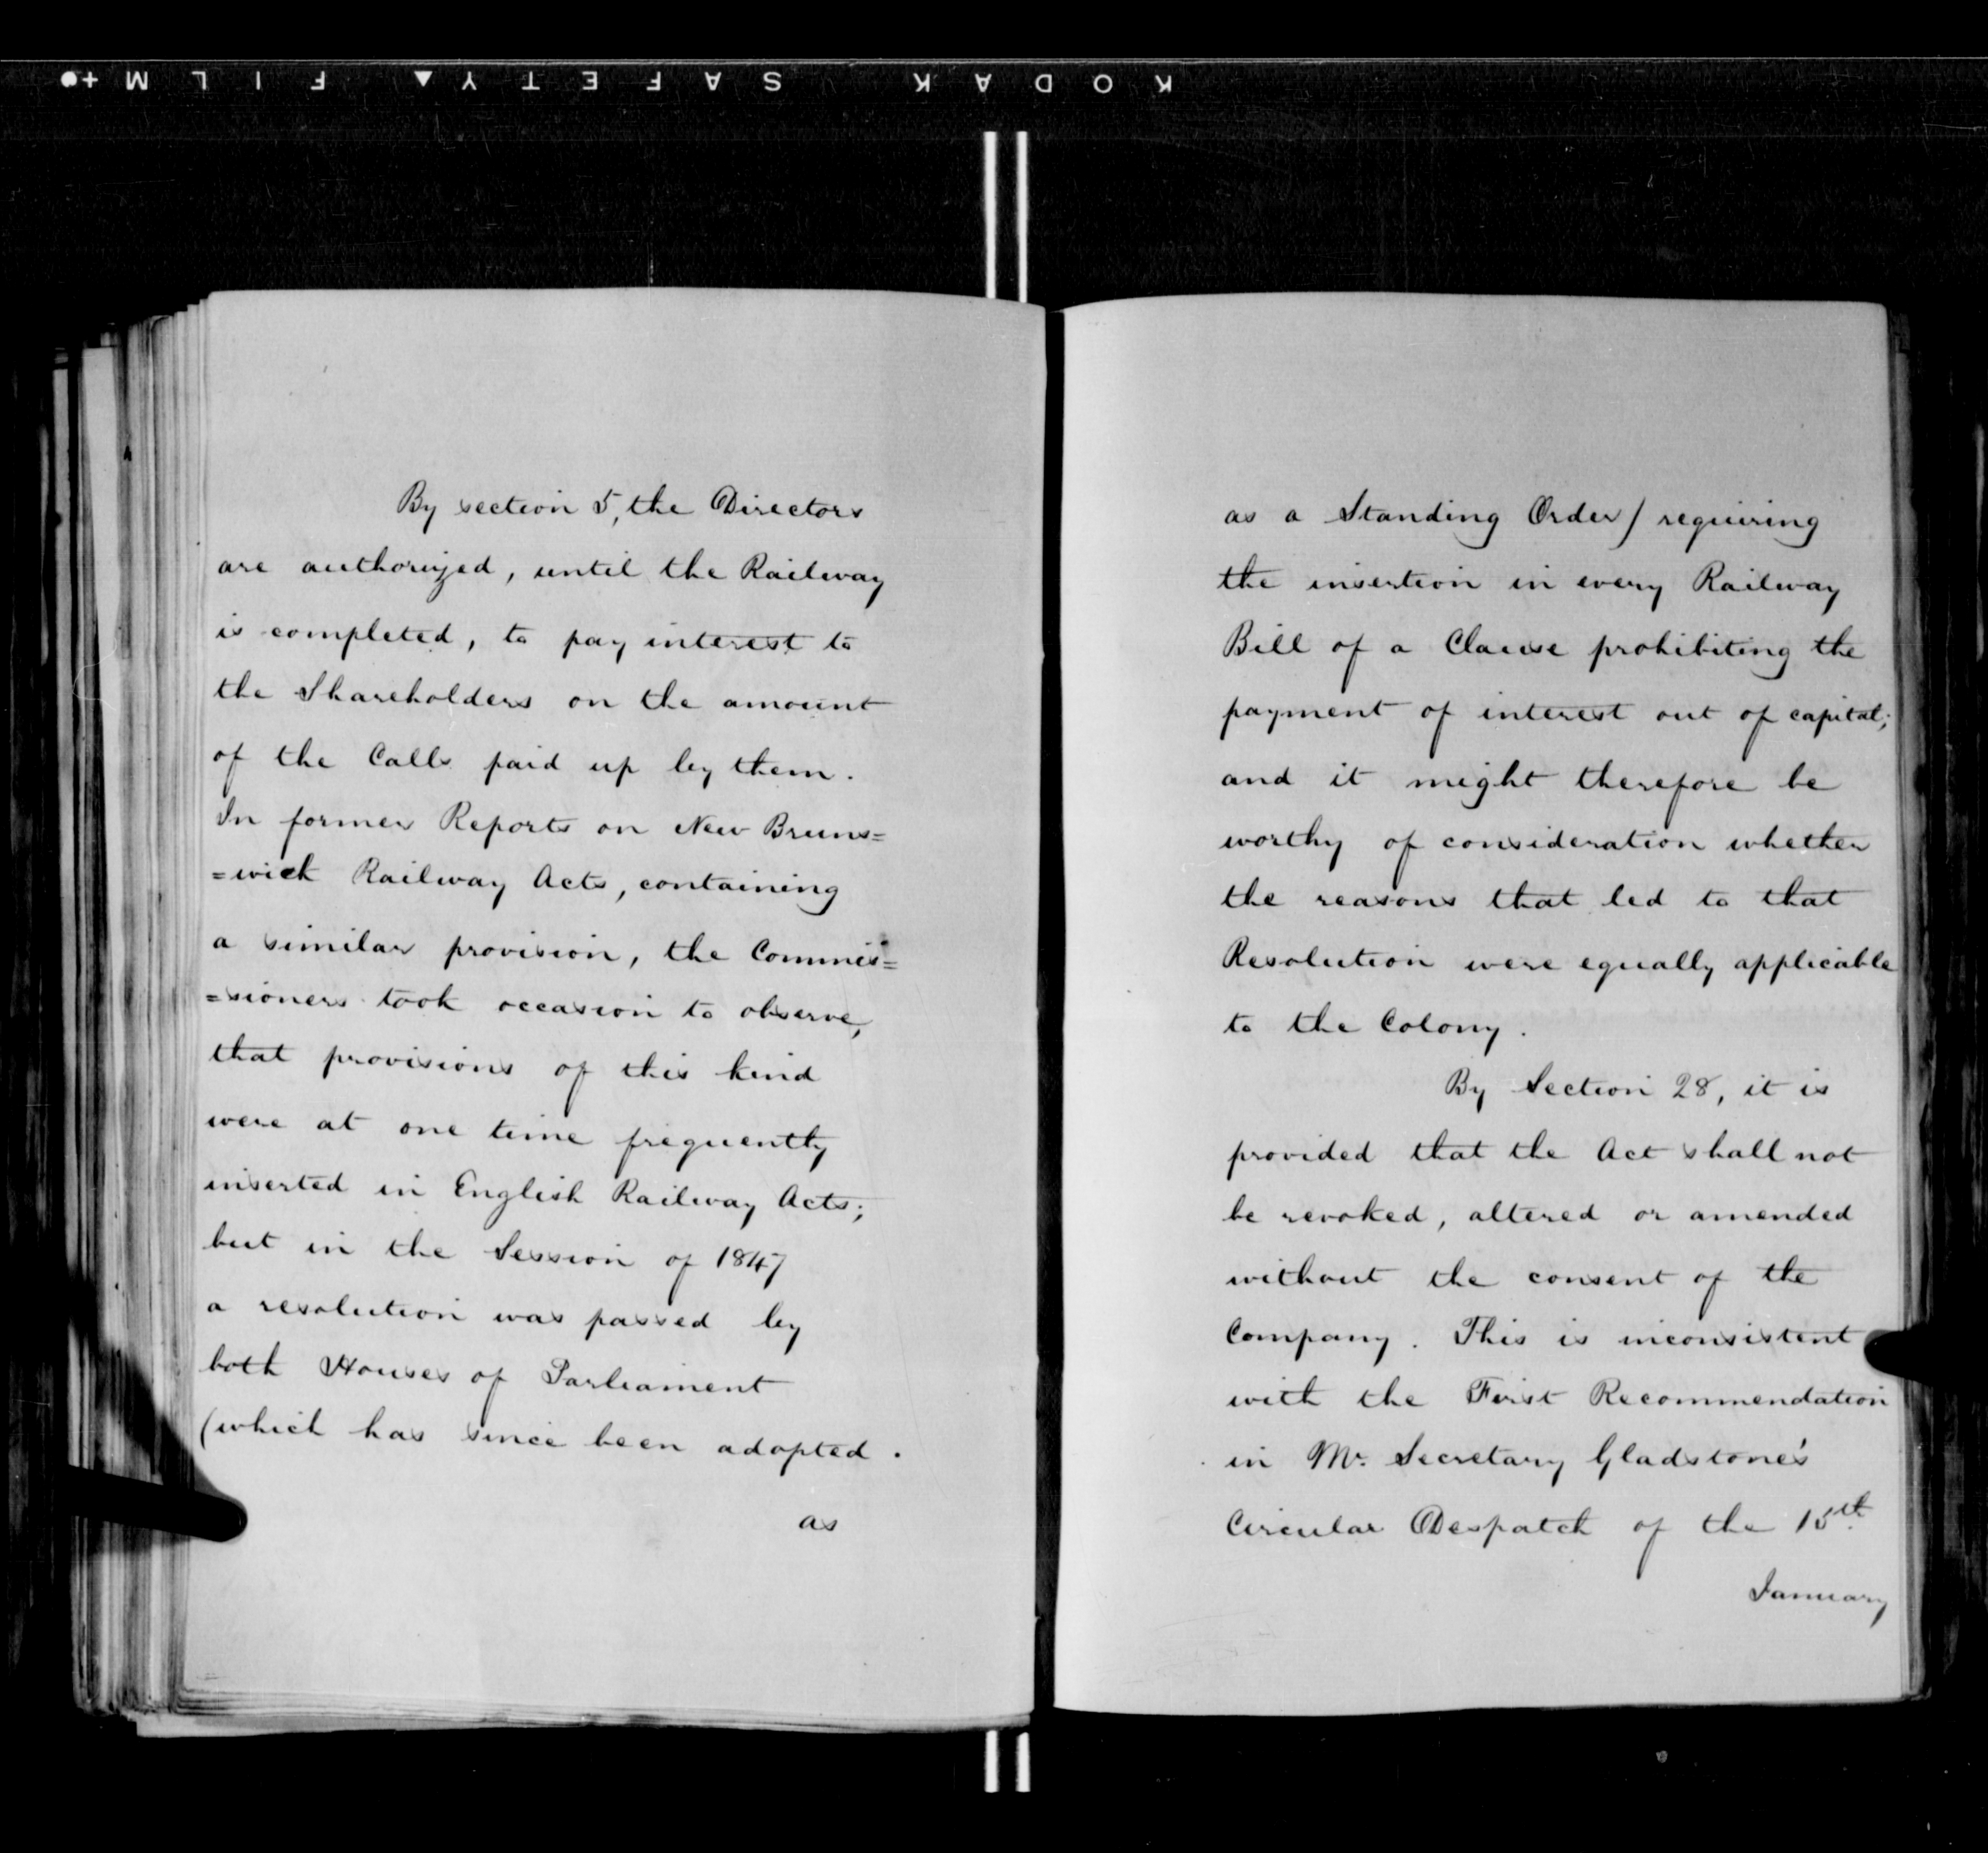 KODAK SAFETY▲ FILM +●
By section 5, the Directors
are authorized, until the Railway
is completed, to pay interest to
the Shareholders on the amount
of the Calls paid up by them.
In former Reports on New Bruns=
=wick Railway Acts, containing
a similar provision, the Commis=
=sioners took occasion to observe,
that provisions of this kind
were at one time frequently
inserted in English Railway Acts;
but in the Session of 1847
a resolution was passed by
both Houses of Parliament
(which has since been adopted.
as
as a Standing Order) requiring
the insertion in every Railway
Bill of a Clause prohibiting the
payment of interest out of capital;
and it might therefore be
worthy of consideration whether
the reasons that led to that
Resolution were equally applicable
to the Colony.
By Section 28, it is
provided that the Act shall not
be revoked, altered or amended
without the consent of the
Company. This is inconsistent
with the First Recommendation
in Mr. Secretary Gladstone's
Circular Despatch of the 15th
January